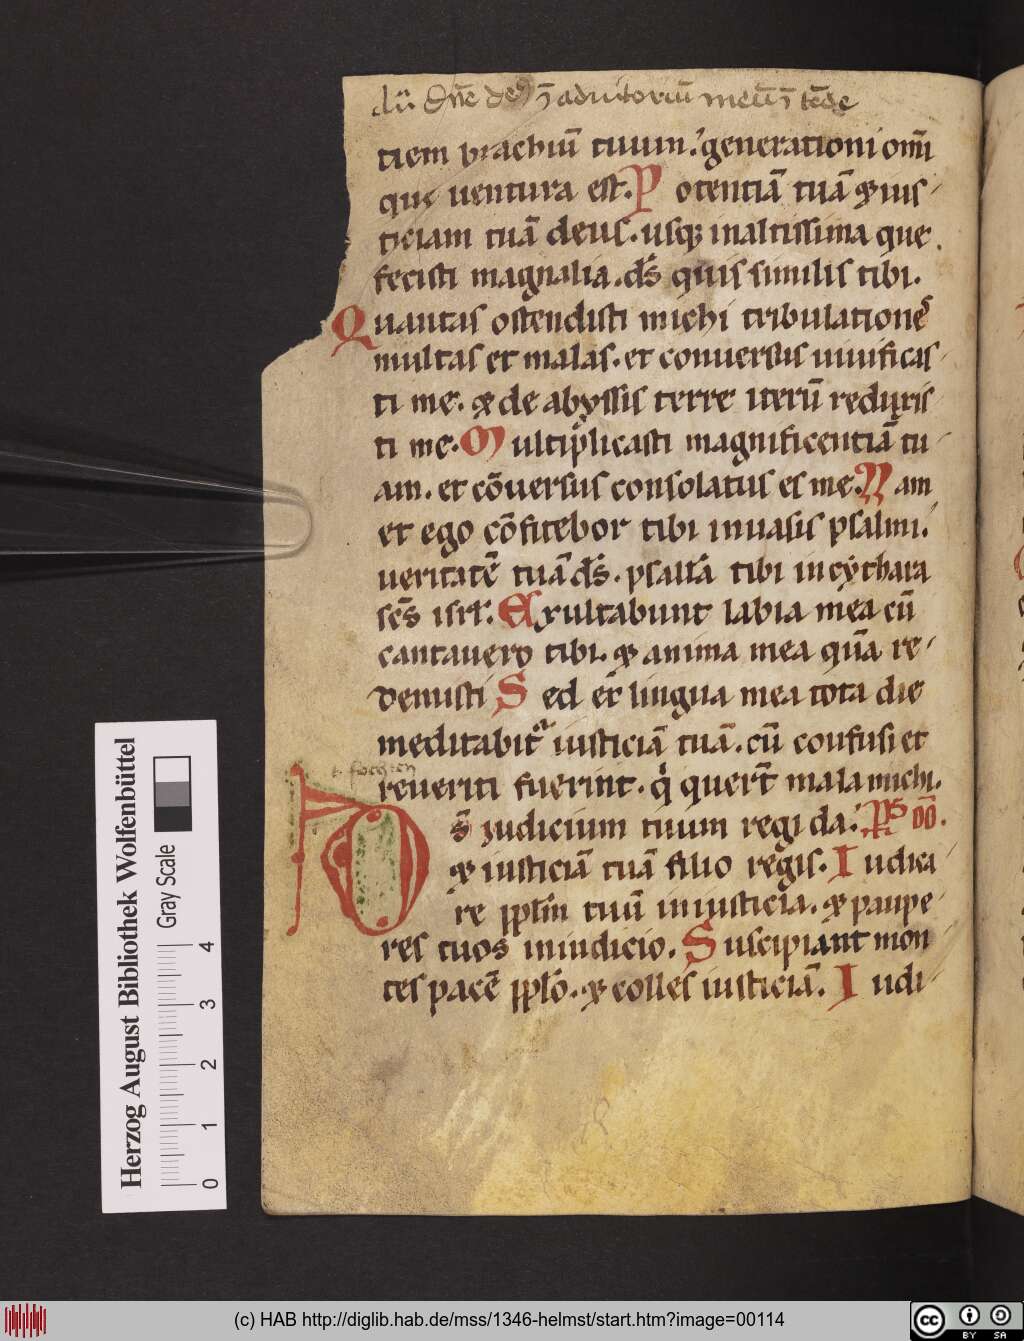 dn̄e deꝰ ī adiutoriū meū ītēde
tiem brachiū tuum. generationi om̄i
que uentura est. Potentiā tuā ⁊ ius
ticiam tuā deus. usq; inaltissima que
fecisti magnalia. ds̄ quis similis tibi.
Quantas ostendisti michi tribulationes
multas et malas. et conuersus uiuificas
ti me. ⁊ de abyssis terre iterū reduxis
ti me. Multiplicasti magnificentiā tu
am. et cōuersus consolatus es me. Nam
et ego cōfitebor tibi inuasis psalmi.
ueritatē tuā ds̄. psallā tibi incythara
scs̄ isrl. Exultabunt labia mea cū
cantauero tibi. ⁊ anima mea quā re
demisti Sed et lingua mea tota die
meditabitᷣ iusticiā tuā. cū confusi et
reueriti fuerint. qͥ quert̄ mala michi.
Ds̄ iudicium tuum regi da. Ps
⁊ iusticiā tuā filio regis. Iudica
re pplm̄ tuū iniusticia. ⁊ paupe
res tuos iniudicio. Suscipiant mon
tes pacē pplo. ⁊ colles iusticiā. Iudi
Herzog August Bibliothek Wolfenbüttel
Gray Scale
0 1 2 3 4
(c) HAB http://diglib.hab.de/mss/1346-helmst/start.htm?image=00114
cc BY SA